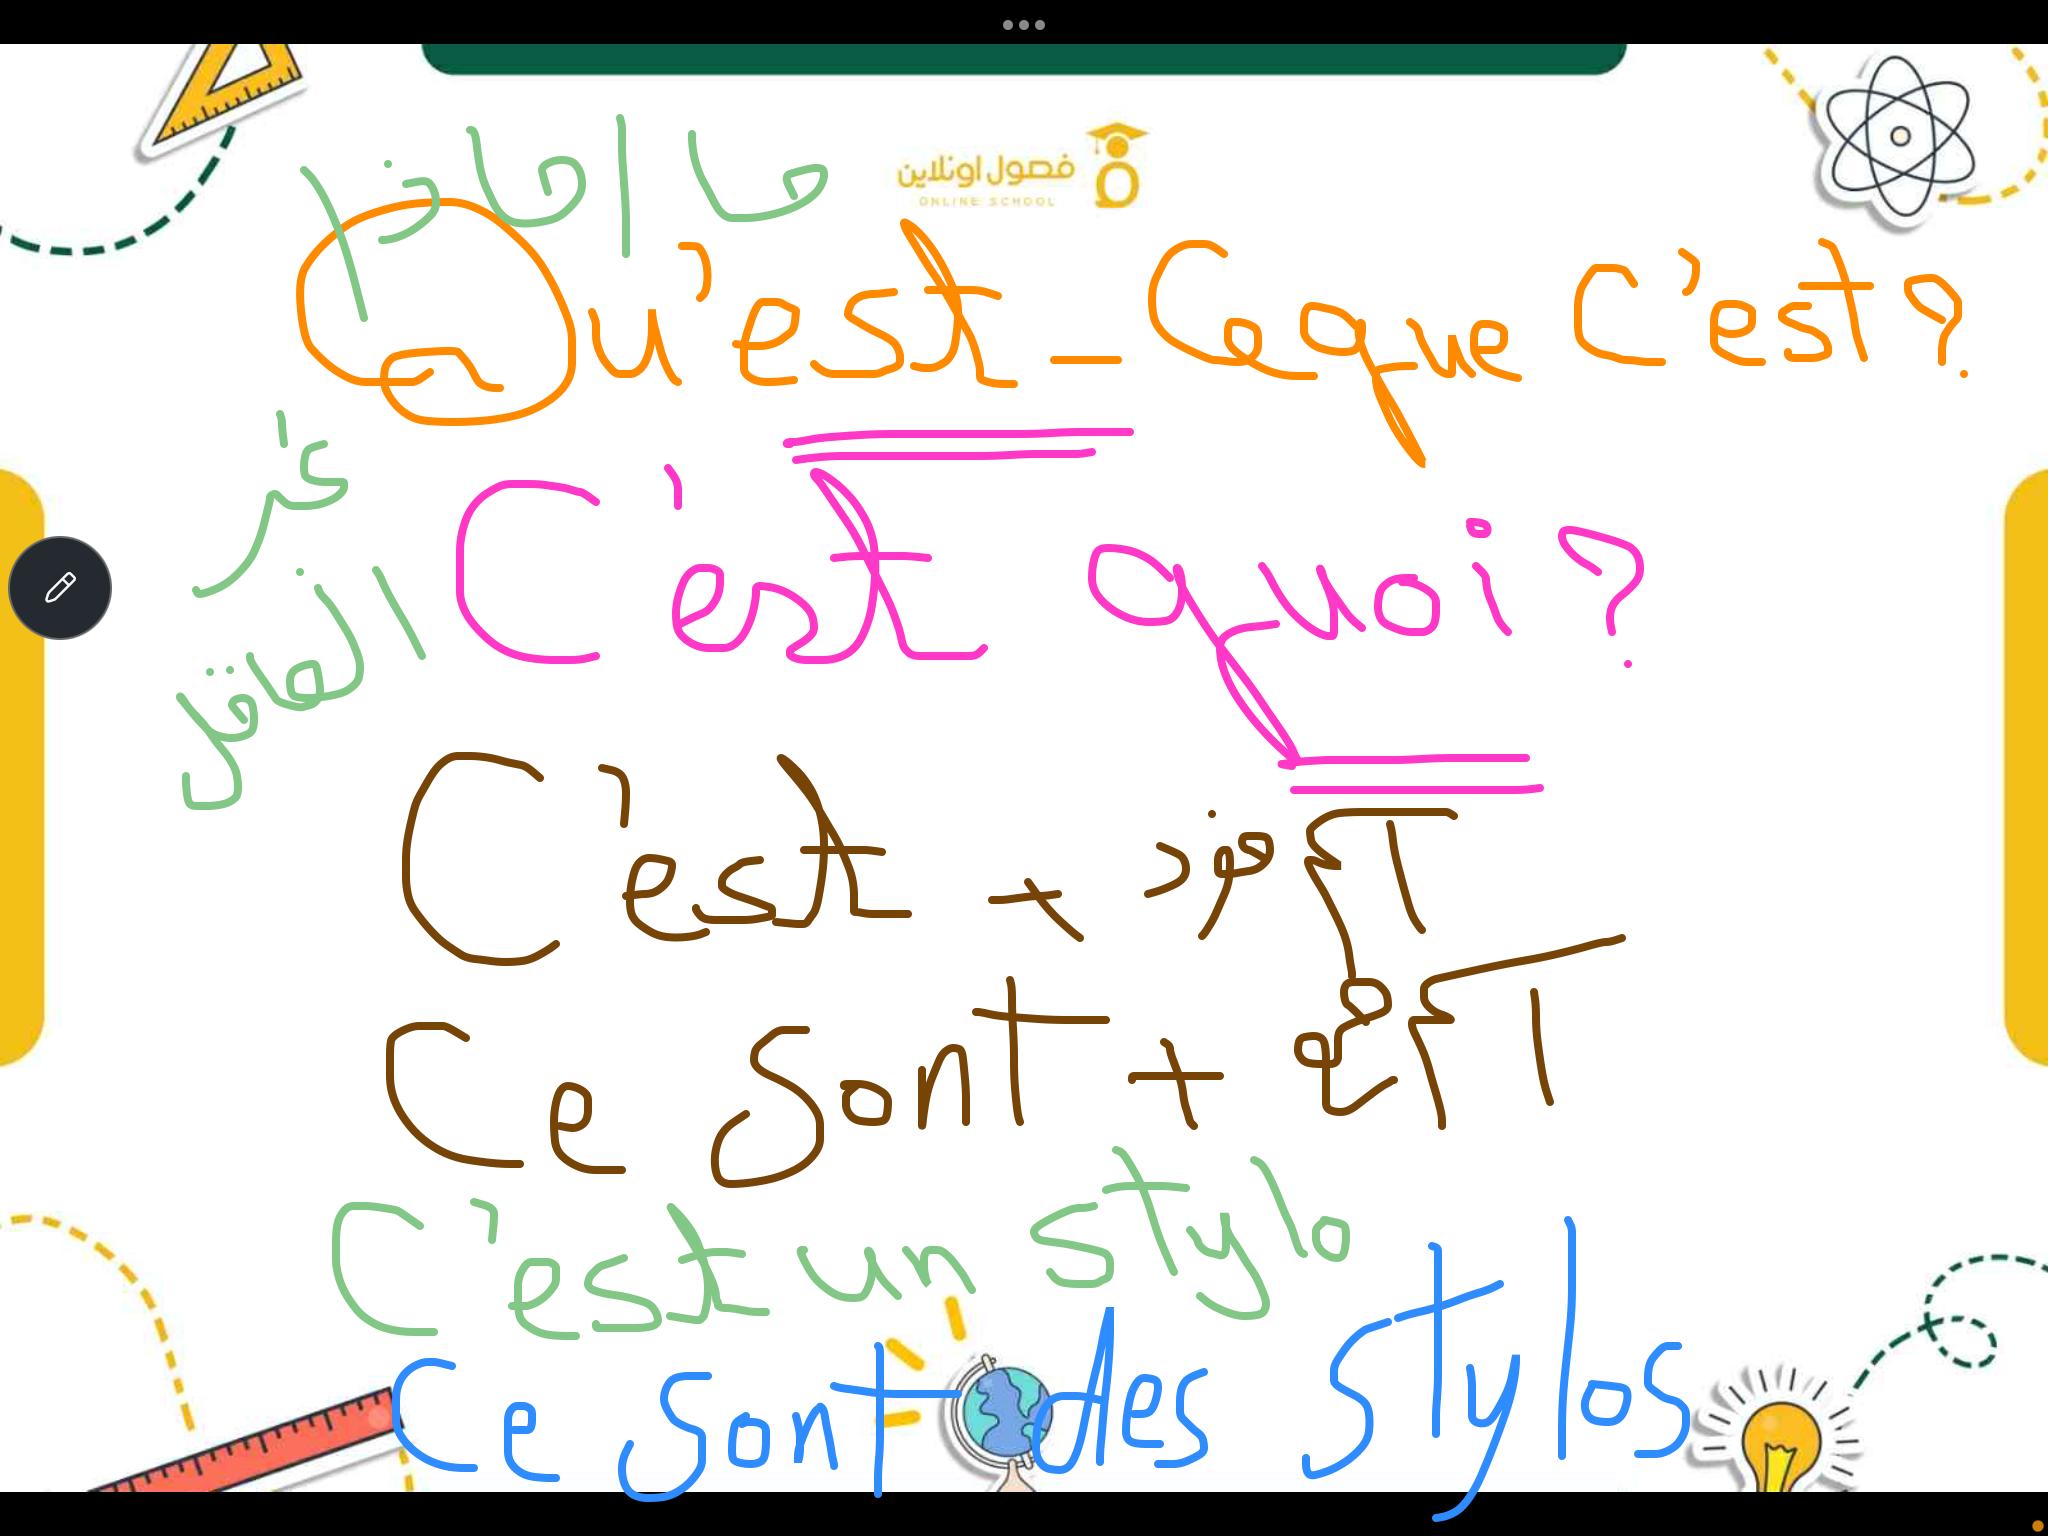 فصول اونلاين
ONLINE SCHOOL
ما / ماذا
Qu'est-ce que c'est?
غير
العاقل
C'est quoi?
C'est + مفرد
Ce sont + جمع
C'est un stylo
Ce sont des stylos